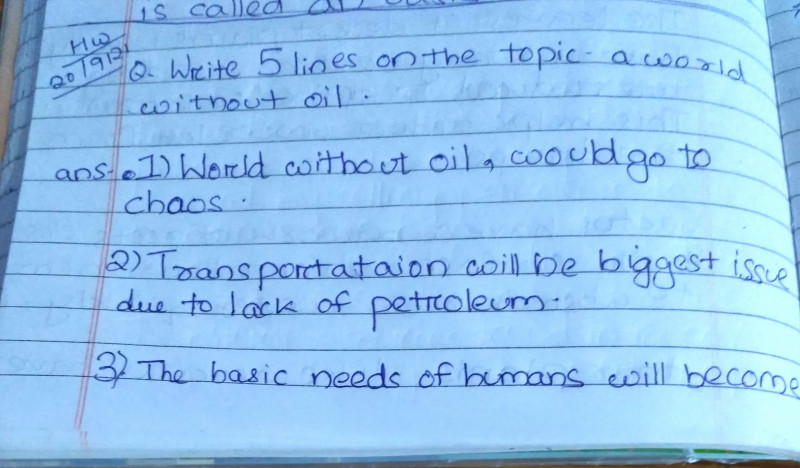 is called
HW
20/9/21
Q. Write 5 lines on the topic - a world
without oil.
ans. 1) World without oil, woould go to
chaos.
2) Transportataion will be biggest issue
due to lack of petroleum.
3) The basic needs of humans will become